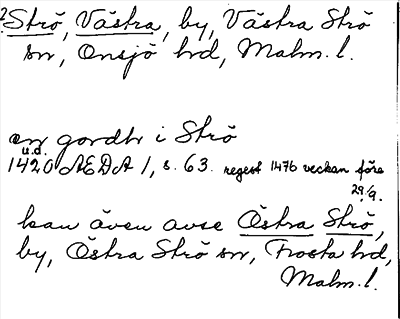 ? Strö, Västra, by, Västra Strö
sn, Onsjö hd, Malm. l.
en gordh i Strö
u.d.
1420 AEDA 1, s. 63. regest 1476 veckan före
29/9.
kan även avse Östra Strö,
by, Östra Strö sn, Frosta hd,
Malm. l.